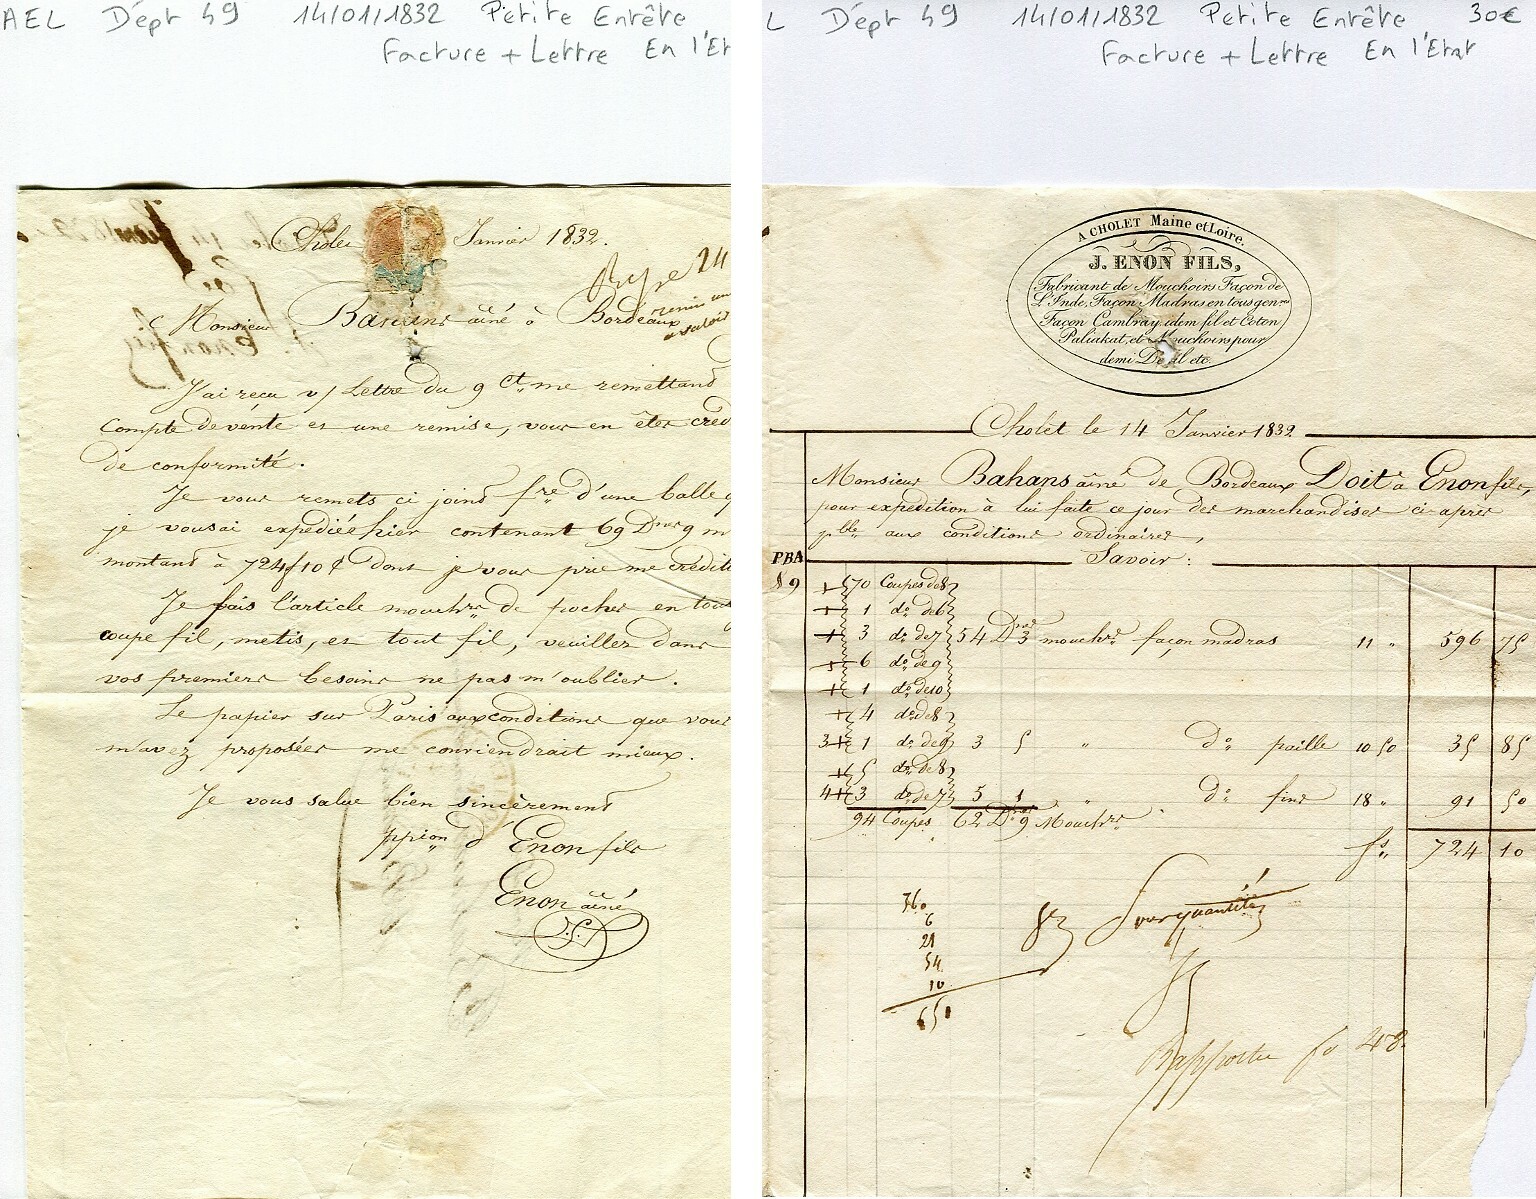 AEL Dépt 49 14/01/1832 Petite Entête
Facture + Lettre En l'Et
Janvier 1832.
Monsieur aîné à Bordeaux
J'ai reçu v/ Lettre du 9 ct. me remettant
compte de vente et une remise, vous en êtes créd
de conformité.
Je vous remets ci joint fre. d'une balle q
je vous ai expédiée hier contenant 69 Dnes 9 m
montant à 724f 10 c dont je vous prie me crédite
Je fais l'article mouchrs. de poches en tous
coupe fil, metis, et tout fil, veuillez dans
vos premiers besoins ne pas m'oublier.
Le papier sur Paris aux conditions que vous
m'avez proposées me conviendrait mieux.
Je vous salue bien sincèrement
ppion d'Enon fils
Enon aîné
L Dépt 49 14/01/1832 Petite Entête 30€
Facture + Lettre En l'Etat
A CHOLET Maine et Loire.
J. ENON FILS,
Fabricant de Mouchoirs Façon de
L'Inde, Façon Madras en tous genres
Façon Cambray idem fil et Coton
Paliakat, et Mouchoirs pour
demi De il etc.
Cholet le 14 Janvier 1832
Monsieur Bahans aîné de Bordeaux Doit à Enon fils,
pour expédition à lui faite ce jour des marchandises ci-après
pble aux conditions ordinaires,
Savoir:
PBA
89
70 Coupes de 8
1 do. de 6
3 do. de 7 54 Dnes 3 mouchrs. façon madras 11 " 596 75
6 do. de 9
1 do. de 10
4 do. de 8
1 do. de 9 3 5 " do. paille 10 50 35 85
5 do. de 8
3 do. de 7 5 1 " do. fins 18 " 91 50
94 Coupes 62 Dnes 9 Mouchrs
fs. 724 10
6
21
54
10
651
Rapporté fo 48.